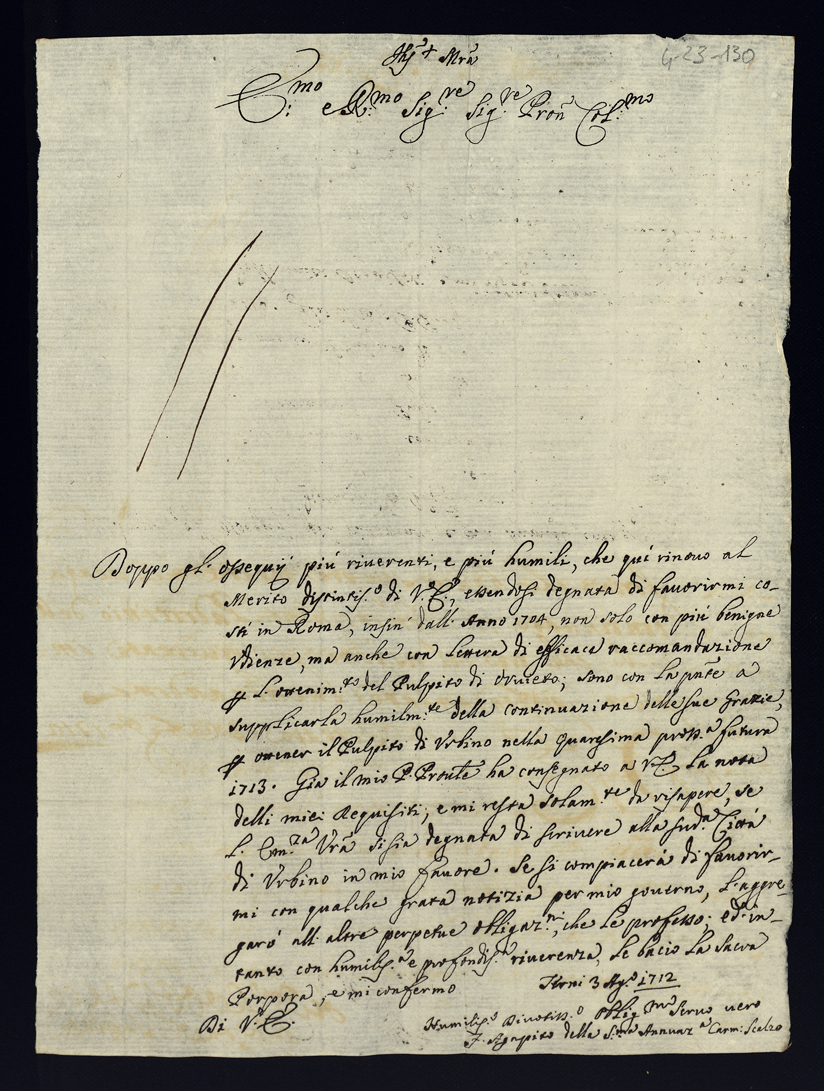 Jhs + Mra
4-23-130
E.mo e R.mo Sig.re Sig.re Pron Col.mo
Doppo gl' ossequij più riverenti, e più humili, che qui rinovo al
Merito distintis.o di V.E., essendosi degnata di favorirmi co-
stì in Roma, insin' dall' Anno 1704, non solo con più benigne
Vdienze, ma anche con Lettera di efficace raccomandazione
p L' ottenim.to del Pulpito di Orvieto; sono con La pnte a
supplicarla humilm.te della continuazione delle sue Grazie,
p ottener il Pulpito di Vrbino nella quaresima pross.a futura
1713. Già il mio P. Proule ha consegnato a V.E. La nota
delli miei Requisiti; e mi resta solam.te da risapere, se
L' Em.za Vra si sia degnata di scrivere alla sud.a Città
di Vrbino in mio favore. Se si compiacerà di favorir-
mi con qualche grata notizia per mio governo, L' aggre-
garò all' altre perpetue obligaz.ni, che Le professo. ed' in-
tanto con humilis.a e profondis.a riverenza, Le bacio La Sacra
Porpora, e mi confermo
Terni 3 Ag.o 1712
Di V.E.
Humilis.o Divotiss.o Oblig.mo Servo vero
F. Agapito della S.ma Annunz.a Carm: Scalzo